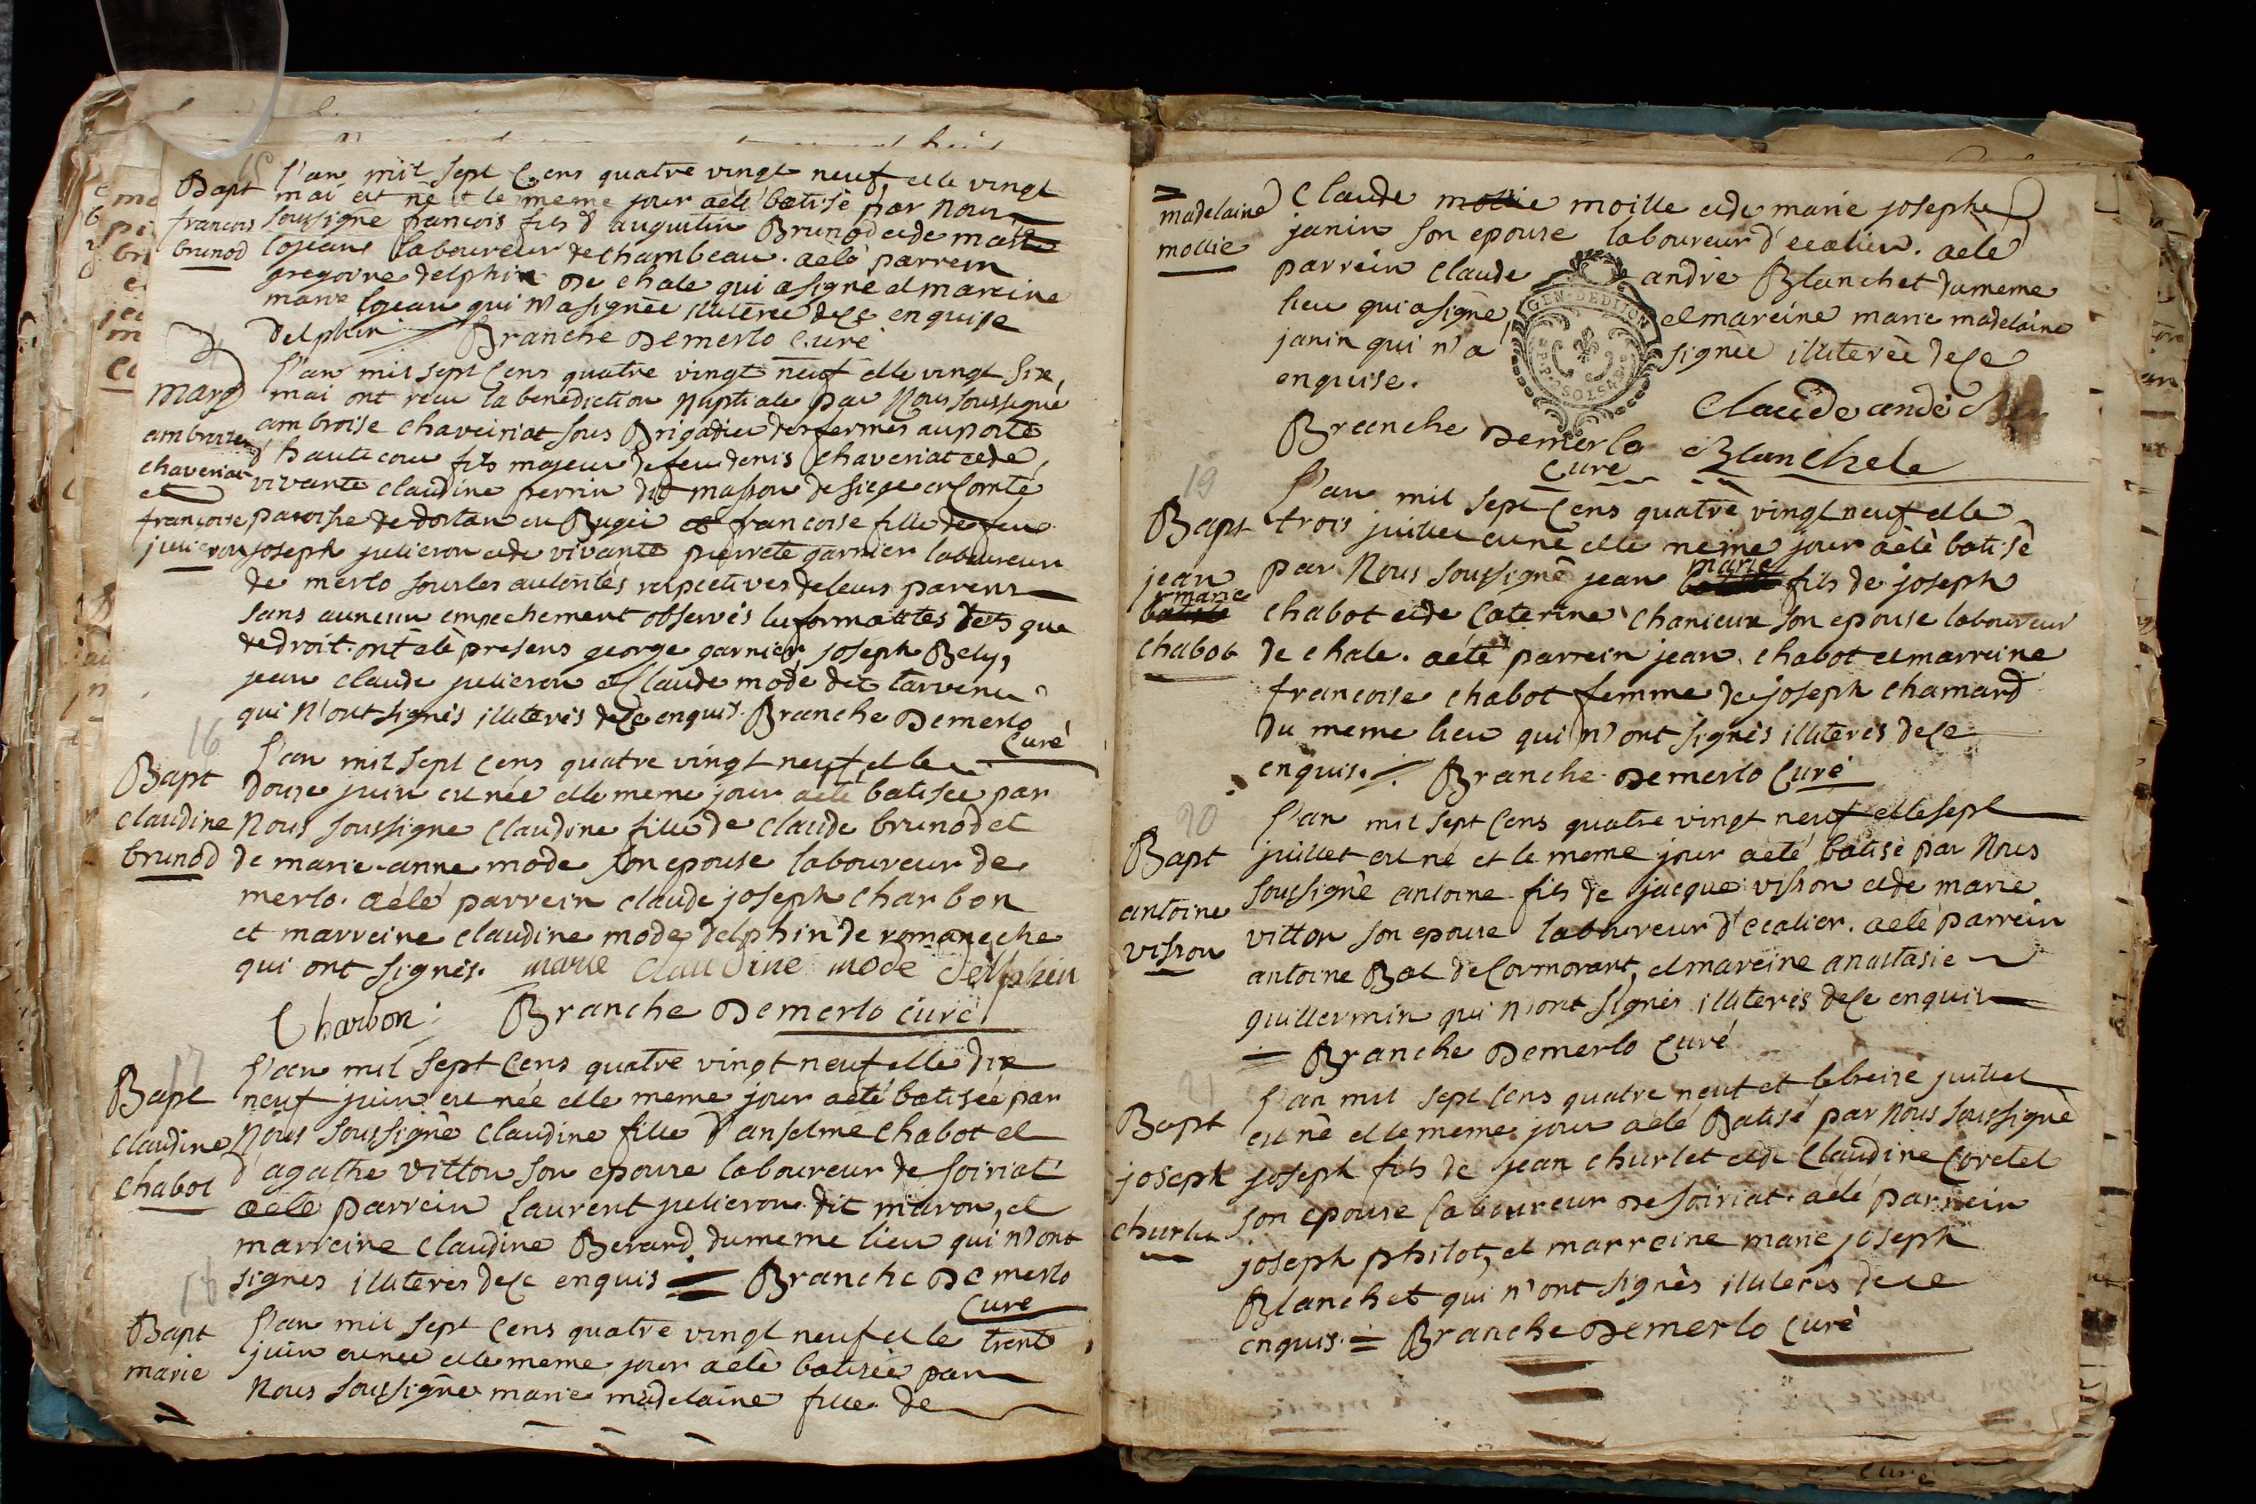 15
Bapt
francois
brunod
l'an mil sept Cens quatre vingt neuf et le vingt
mai est né et le meme jour aeté batisé par Nous
soussigné francois fils d'augustin Brunod et de
lojeans laboureur de chambeau. aeté parrein
gregoire delphin De chale qui a signé et mareine
marie lojean qui n'a signée illiterée de ce enquise
Delphin Branche Demerlo Curé
marg
ambroise
chaveriat
et
francoise
julieron
l'an mil sept Cens quatre vingt neuf et le vingt six
mai ont recu la benediction Nuptiale par Nous soussigné
ambroise chaveiriat sous Brigadier des fermes au poste
d'hautecour fils majeur de feu denis Chaveriat et de
vivante claudine perrin dit masson de siege en Comté
paroisse de dortan en Bugei et francoise fille de feu
joseph julieron et de vivante pierrete garnier laboureur
de merlo sous les autorités respectives de leurs parens
sans aucun empechement observés les formalités
de droit. ont eté presens george garnier joseph Bely,
jean claude julieron et Claude mode dit tarvenu
qui n'ont signés illiterés de ce enquis. Branche Demerlo
Curé
16
Bapt
claudine
brunod
l'an mil sept Cens quatre vingt neuf et le
Douse juin est née et le meme jour aeté batisée par
Nous soussigné Claudine fille de claude brunod et
de marie anne mode son epouse laboureur de
merlo. aeté parrein claude joseph charbon
et marreine claudine mode delphin de romaneche
qui ont signés. marie claudine mode delphin
Charbon Branche Demerlo curé
17
Bapt
claudine
chabot
l'an mil sept Cens quatre vingt neuf et le dix
neuf juin est née et le meme jour aeté batisée par
Nous soussigné Claudine fille d'anselme Chabot et
d'agathe vitton son epouse laboureur de soiriat
aeté parrein laurent julieron dit maron, et
marreine claudine Berard du meme lieu qui n'ont
signes illiteres de ce enquis = Branche De merlo
Curé
18
Bapt
marie
=
l'an mil sept Cens quatre vingt neuf et le trente
juin est née et le meme jour aeté batisée par
Nous soussigné marie madelaine fille de
=
madelaine
mollie
Claude moille et de marie josephe
janin son epouse laboureur d'ecalier. aeté
parrein claude andré Blanchet du meme
lieu qui a signé, et mareine marie madelaine
janin qui n'a signée illiterée de ce
enquise.
GEN. DE DIJON
Claude andé
Branche Demerlo Blanchele
Curé
19
Bapt
jean
marie
chabot
l'an mil sept Cens quatre vingt neuf et le
trois juillet est né et le meme jour aeté batisé
par Nous soussigné jean marie fils de joseph
chabot et de Caterine Chanieux son epouse laboureur
de chale. aeté parrein jean chabot et marreine
francoise chabot femme de joseph chamard
du meme lieu qui n'ont signés illiterés de ce
enquis. Branche Demerlo Curé
20
Bapt
antoine
visson
l'an mil sept Cens quatre vingt neuf et le sept
juillet est né et le meme jour aeté batisé par Nous
soussigné antoine fils de jacque visson et de marie
vitton son epouse laboureur d'ecalier. aeté parrein
antoine Bal de Cormorant, et mareine anastasie
guillermin qui n'ont signés illiterés de ce enquis
= Branche Demerlo Curé
21
Bapt
joseph
churlet
l'an mil sept Cens quatre neuf et le treise juillet
est né et le meme jour aeté Batisé par nous soussigné
joseph fils de jean churlet et de Claudine Coretel
son epouse laboureur De soiriat. aeté parrein
joseph philot, et marreine marie joseph
Blanchet qui n'ont signés illiterés de ce
enquis. = Branche Demerlo curé